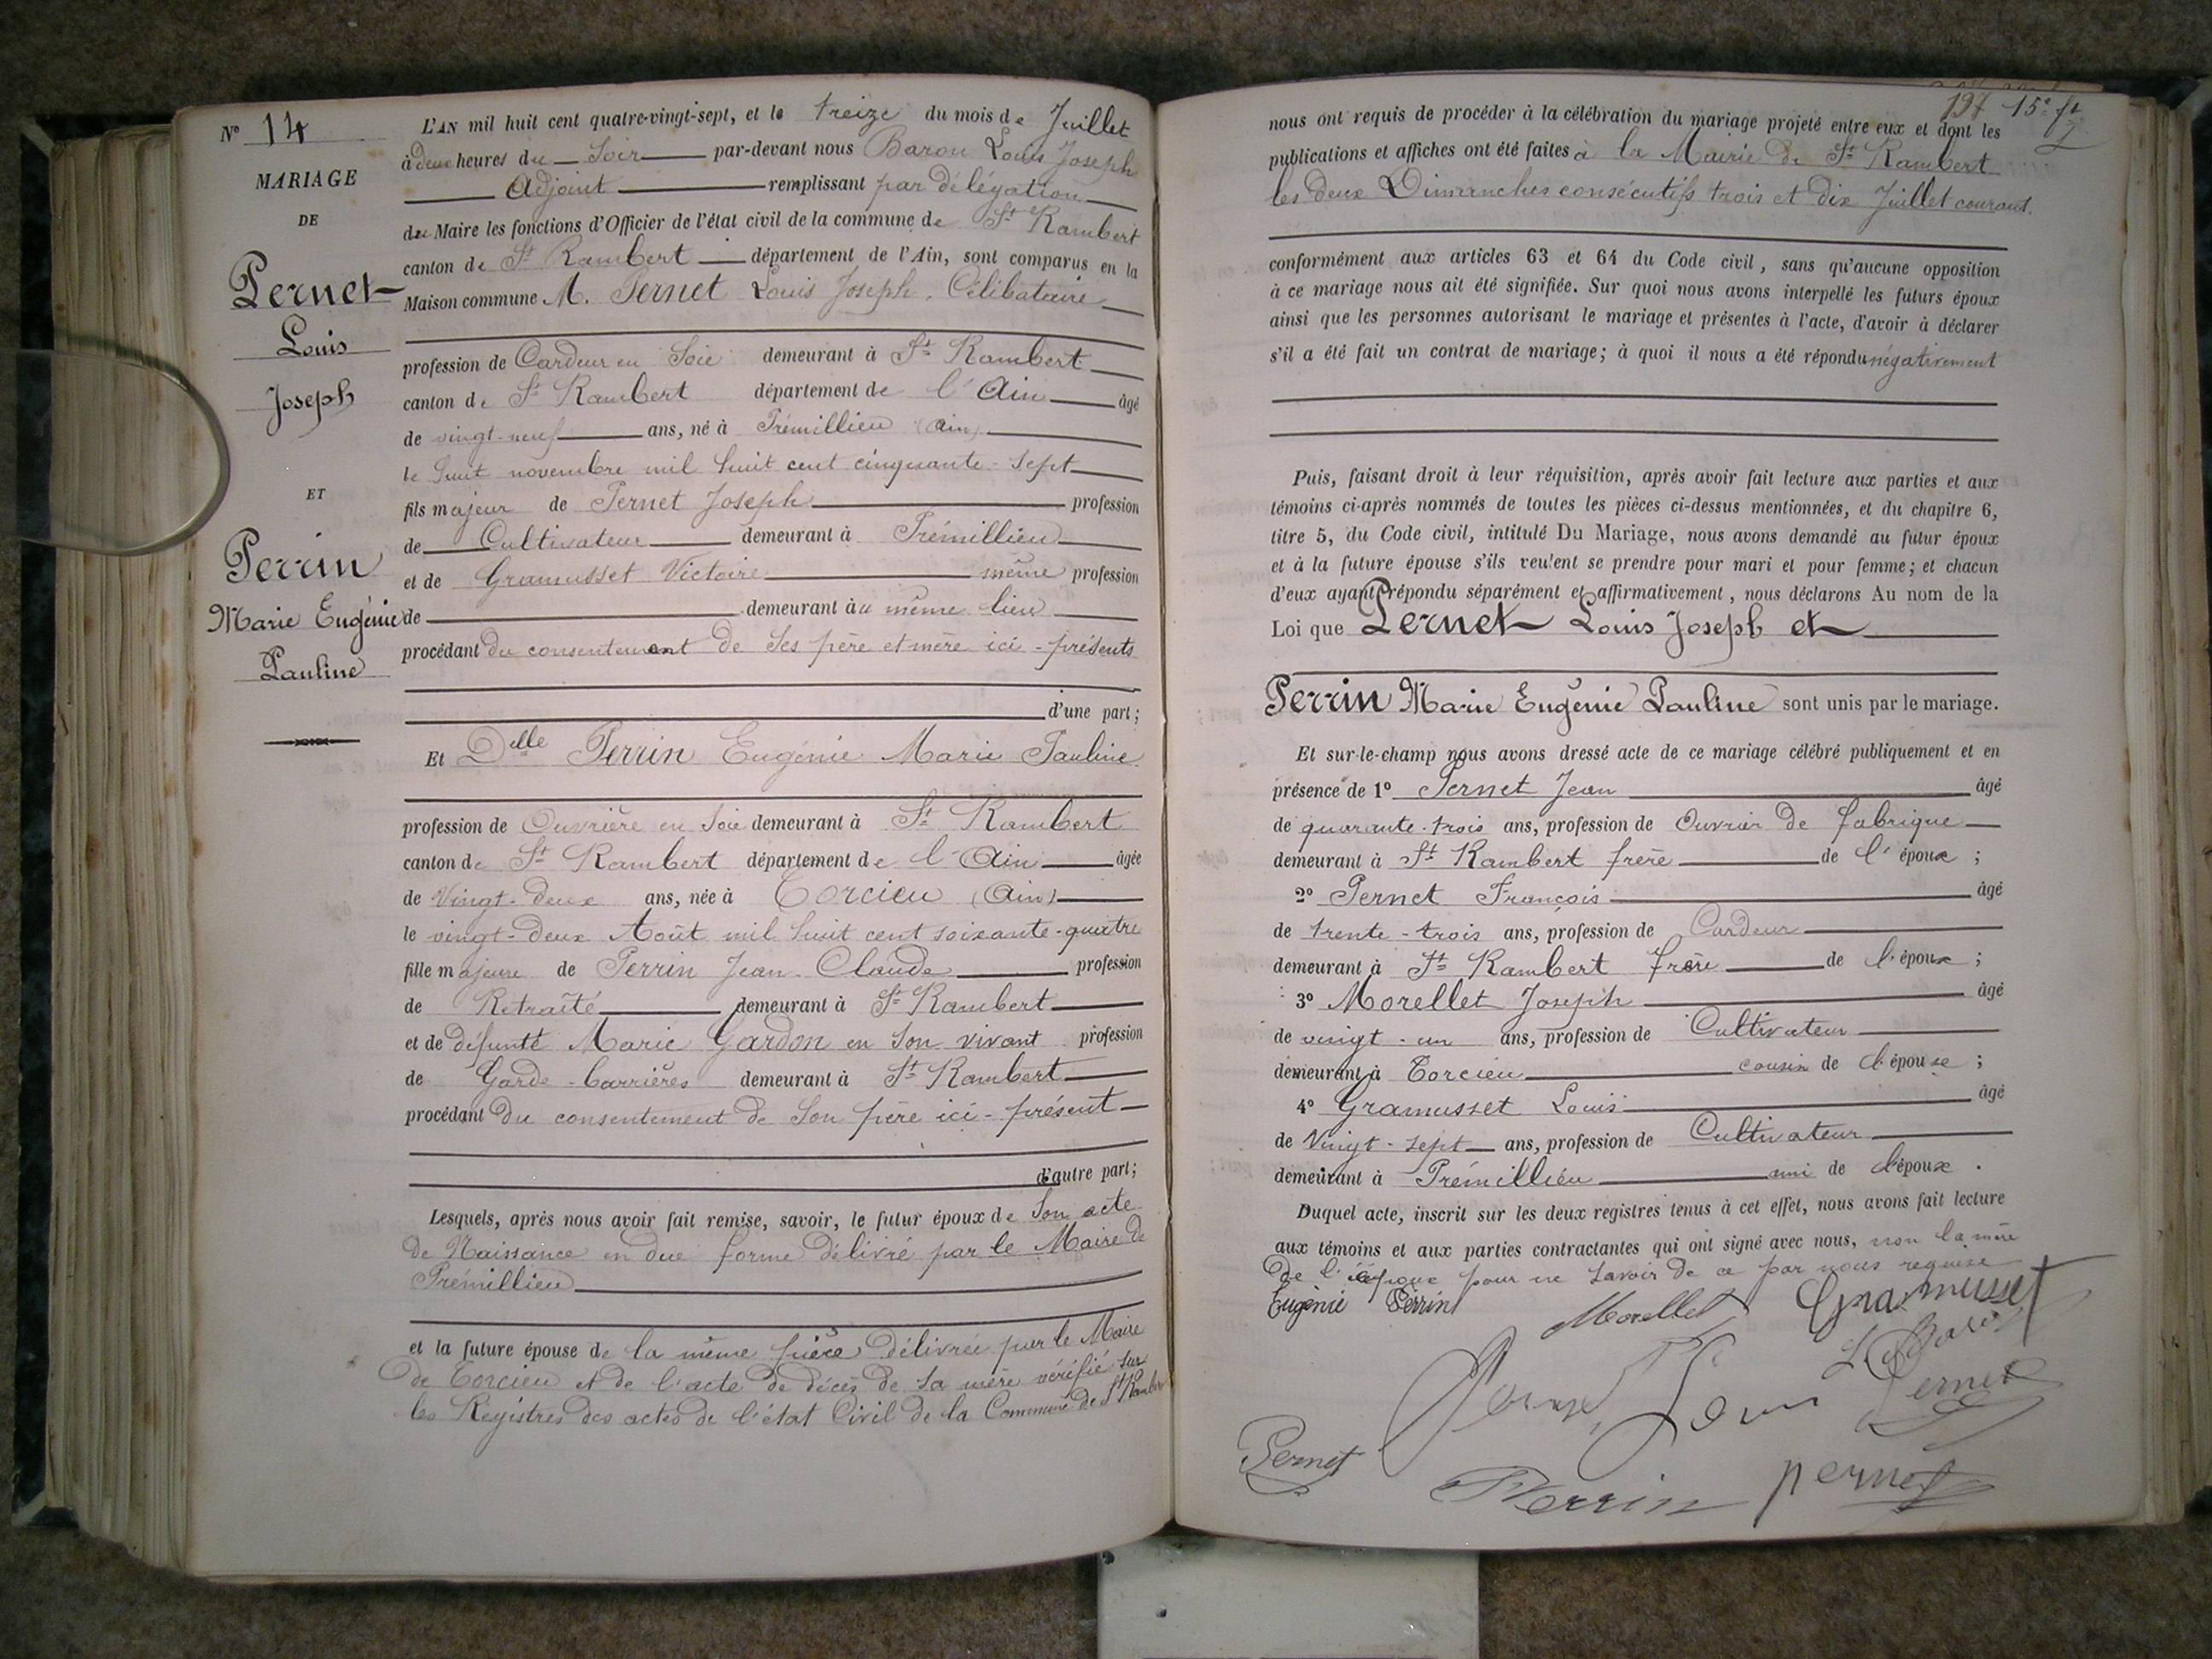 N° 14
MARIAGE
DE
Pernet
Louis
Joseph
ET
Perrin
Marie Eugénie
Pauline
L'AN mil huit cent quatre-vingt-sept, et le treize du mois de Juillet
à deux heures du Soir par-devant nous Baron Louis Joseph
Adjoint remplissant par délégation
du Maire les fonctions d'Officier de l'état civil de la commune de St Rambert
canton de St Rambert département de l'Ain, sont comparus en la
Maison commune M. Pernet Louis Joseph, Célibataire
profession de Cardeur en Soie demeurant à St Rambert
canton de St Rambert département de l'Ain âgé
de vingt-neuf ans, né à Prémillieu (Ain)
le huit novembre mil huit cent cinquante-sept
fils majeur de Pernet Joseph profession
de Cultivateur demeurant à Prémillieu
et de Gramusset Victoire même profession
de demeurant au même lieu
procédant du consentement de ses père et mère ici-présents
d'une part;
Et Delle Perrin Eugénie Marie Pauline
profession de Ouvrière en Soie demeurant à St Rambert
canton de St Rambert département de l'Ain âgée
de Vingt-deux ans, née à Torcieu (Ain)
le vingt-deux Août mil huit cent soixante-quatre
fille majeure de Perrin Jean-Claude profession
de Retraité demeurant à St Rambert
et de défunte Marie Gardon en son vivant profession
de Garde-barrières demeurant à St Rambert
procédant du consentement de son père ici-présent
d'autre part;
Lesquels, après nous avoir fait remise, savoir, le futur époux de son acte
de Naissance en due forme délivré par le Maire de
Prémillieu
et la future épouse de la même pièce délivrée par le Maire
de Torcieu et de l'acte de décès de sa mère vérifié sur
les Registres des actes de l'état Civil de la Commune de St Rambert
197 15e
nous ont requis de procéder à la célébration du mariage projeté entre eux et dont les
publications et affiches ont été faites à la Mairie de St Rambert
les deux Dimanches consécutifs trois et dix Juillet courant.
conformément aux articles 63 et 64 du Code civil, sans qu'aucune opposition
à ce mariage nous ait été signifiée. Sur quoi nous avons interpellé les futurs époux
ainsi que les personnes autorisant le mariage et présentes à l'acte, d'avoir à déclarer
s'il a été fait un contrat de mariage; à quoi il nous a été répondu négativement
Puis, faisant droit à leur réquisition, après avoir fait lecture aux parties et aux
témoins ci-après nommés de toutes les pièces ci-dessus mentionnées, et du chapitre 6,
titre 5, du Code civil, intitulé Du Mariage, nous avons demandé au futur époux
et à la future épouse s'ils veulent se prendre pour mari et pour femme; et chacun
d'eux ayant répondu séparément et affirmativement, nous déclarons Au nom de la
Loi que Pernet Louis Joseph et
Perrin Marie Eugénie Pauline sont unis par le mariage.
Et sur-le-champ nous avons dressé acte de ce mariage célébré publiquement et en
présence de 1° Pernet Jean âgé
de quarante-trois ans, profession de Ouvrier de fabrique
demeurant à St Rambert frère de l'époux;
2° Pernet François âgé
de trente-trois ans, profession de Cardeur
demeurant à St Rambert frère de l'époux;
3° Morellet Joseph âgé
de vingt-un ans, profession de Cultivateur
demeurant à Torcieu cousin de l'épouse;
4° Gramusset Louis âgé
de Vingt-sept ans, profession de Cultivateur
demeurant à Prémillieu ami de l'époux.
Duquel acte, inscrit sur les deux registres tenus à cet effet, nous avons fait lecture
aux témoins et aux parties contractantes qui ont signé avec nous, non la mère
de l'époux pour ne savoir de ce par nous requise
Eugénie Perrin Morellet Gramusset
L. Baron
Pernet
Pernet
Perrin pernet